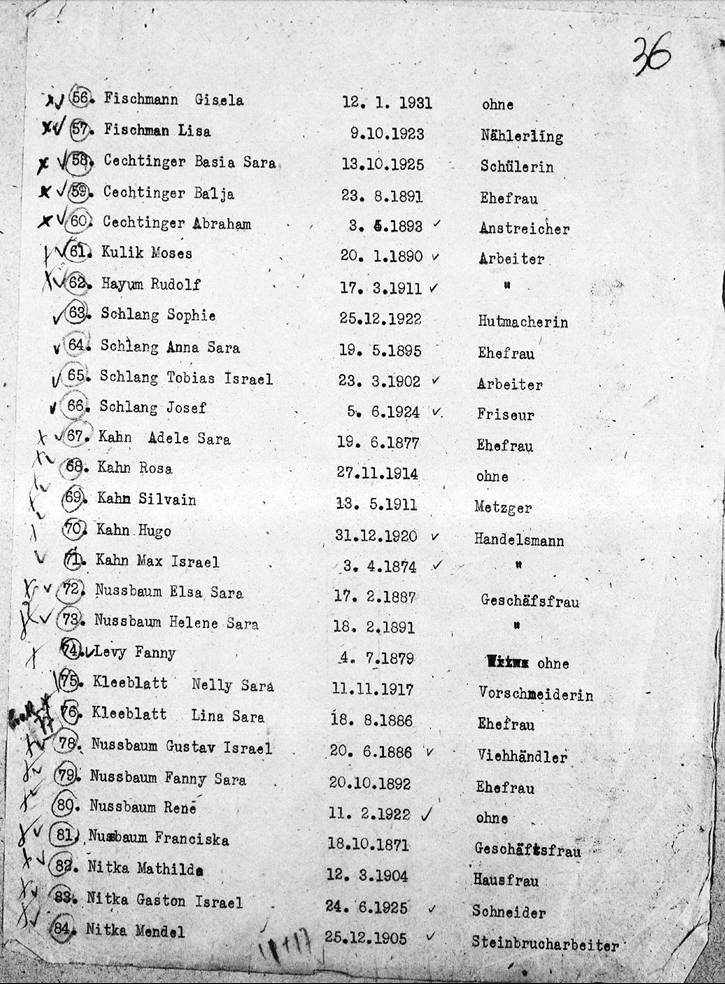 36
56. Fischmann Gisela 12. 1. 1931 ohne
57. Fischman Lisa 9.10.1923 Nählerling
58. Cechtinger Basia Sara 13.10.1925 Schülerin
59. Cechtinger Balja 23. 8.1891 Ehefrau
60. Cechtinger Abraham 3. 5.1893 ✓ Anstreicher
61. Kulik Moses 20. 1.1890 ✓ Arbeiter
62. Hayum Rudolf 17. 3.1911 ✓ "
63. Schlang Sophie 25.12.1922 Hutmacherin
64. Schlang Anna Sara 19. 5.1895 Ehefrau
65. Schlang Tobias Israel 23. 3.1902 ✓ Arbeiter
66. Schlang Josef 5. 6.1924 ✓ Friseur
67. Kahn Adele Sara 19. 6.1877 Ehefrau
68. Kahn Rosa 27.11.1914 ohne
69. Kahn Silvain 13. 5.1911 Metzger
70. Kahn Hugo 31.12.1920 ✓ Handelsmann
71. Kahn Max Israel 3. 4.1874 ✓ "
72. Nussbaum Elsa Sara 17. 2.1887 Geschäfsfrau
73. Nussbaum Helene Sara 18. 2.1891 "
74. Levy Fanny 4. 7.1879 ohne
75. Kleeblatt Nelly Sara 11.11.1917 Vorschneiderin
76. Kleeblatt Lina Sara 18. 8.1886 Ehefrau
77
78. Nussbaum Gustav Israel 20. 6.1886 ✓ Viehhändler
79. Nussbaum Fanny Sara 20.10.1892 Ehefrau
80. Nussbaum René 11. 2.1922 ✓ ohne
81. Nussbaum Franciska 18.10.1871 Geschäftsfrau
82. Nitka Mathilde 12. 3.1904 Hausfrau
83. Nitka Gaston Israel 24. 6.1925 ✓ Schneider
84. Nitka Mendel 25.12.1905 ✓ Steinbrucharbeiter